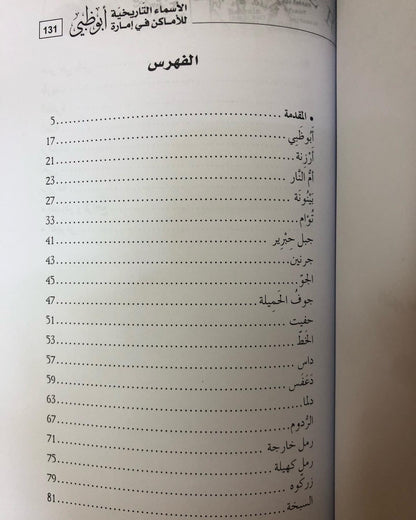 الأسماء التاريخية
للأماكن في إمارة أبوظبي 131
الفهرس
• المقدمة 5
أَبُوظَبِي 17
أَرْزِنة 21
أمُّ النَّار 23
بَيْنُونَة 27
تُوْام 33
جبل حِبْرِير 41
جرنين 43
الجَوّ 45
جوفُ الحَمِيلة 47
حفيت 51
الخَطّ 53
داس 57
دَعَفَس 59
دلما 63
الرُّدوم 67
رمل خارجة 71
رمل كهيلة 75
زركوه 79
السبخة 81